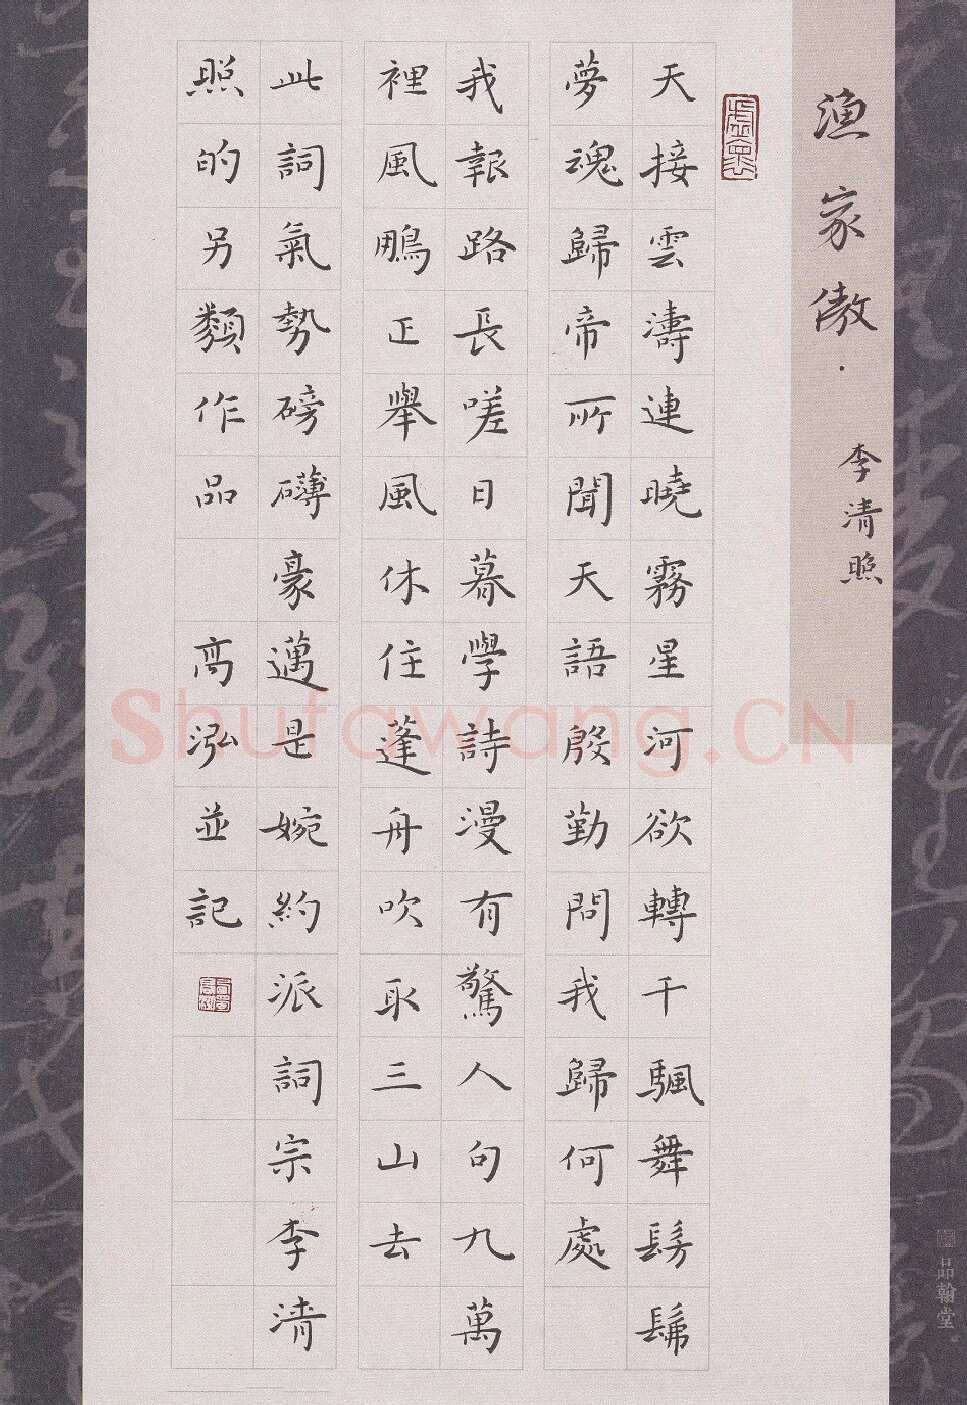 漁家傲．李清照
天接雲濤連曉霧星河欲轉千颿舞髣髴
夢魂歸帝所聞天語殷勤問我歸何處
我報路長嗟日暮學詩漫有驚人句九萬
裡風鵬正舉風休住蓬舟吹取三山去
此詞氣勢磅礴豪邁是婉約派詞宗李清
照的另類作品 高泓並記
品翰堂
Shufawang.CN